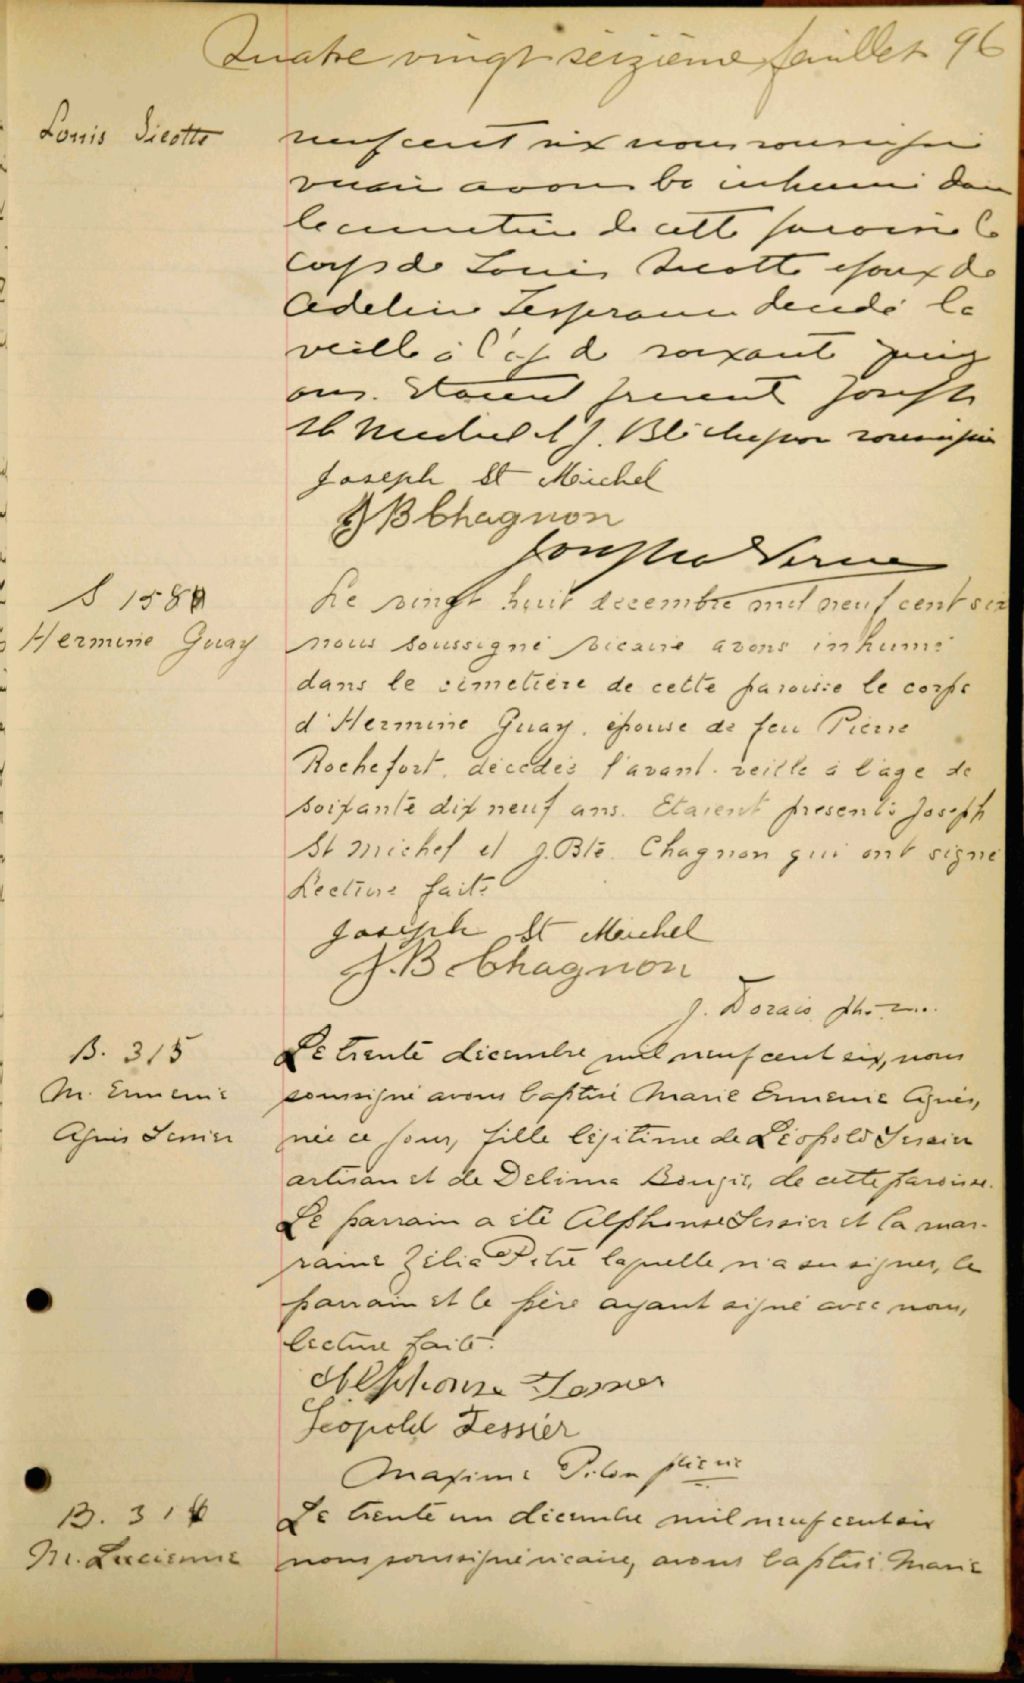 Quatre vingt seizième feuillet 96
Louis Sicotte
neuf cent six nous soussigné
vicaire avons inhumé dans
le cimetière de cette paroisse le
corps de Louis Sicotte epoux de
Adeline Lesperance decedé la
veille à l'age de soixante quinz
ans. Etaient present Joseph
St Michel et J. Bte Chagnon soussigné
Joseph St Michel
JB Chagnon
S 158
Hermine Guay
Le vingt huit decembre mil neuf cent six
nous soussigné vicaire avons inhumé
dans le cimetière de cette paroisse le corps
d'Hermine Guay, épouse de feu Pierre
Rochefort, décédée l'avant-veille à l'age de
soixante dix neuf ans. Etaient presents Joseph
St Michel et J. Bte. Chagnon qui ont signé
Lecture faite
Joseph St Michel
J.B Chagnon
J. Dorais ptre
B. 315
M. Ermenie
Agnès Tessier
Le trente décembre mil neuf cent six, nous
soussigné avons baptisé Marie Ermenie Agnès,
née ce jour, fille légitime de Léopold Tessier
artisan et de Delima Bougie, de cette paroisse.
Le parrain a été Alphonse Tessier et la mar-
raine Zélia Pitre laquelle n'a su signer, le
parrain et le père ayant signé avec nous,
lecture faite.
Alphonse Tessier
Léopold Tessier
Maxime Pilon ptre
B. 31
M. Lucienne
Le trente un décembre mil neuf cent six
nous soussigné vicaire, avons baptisé Marie